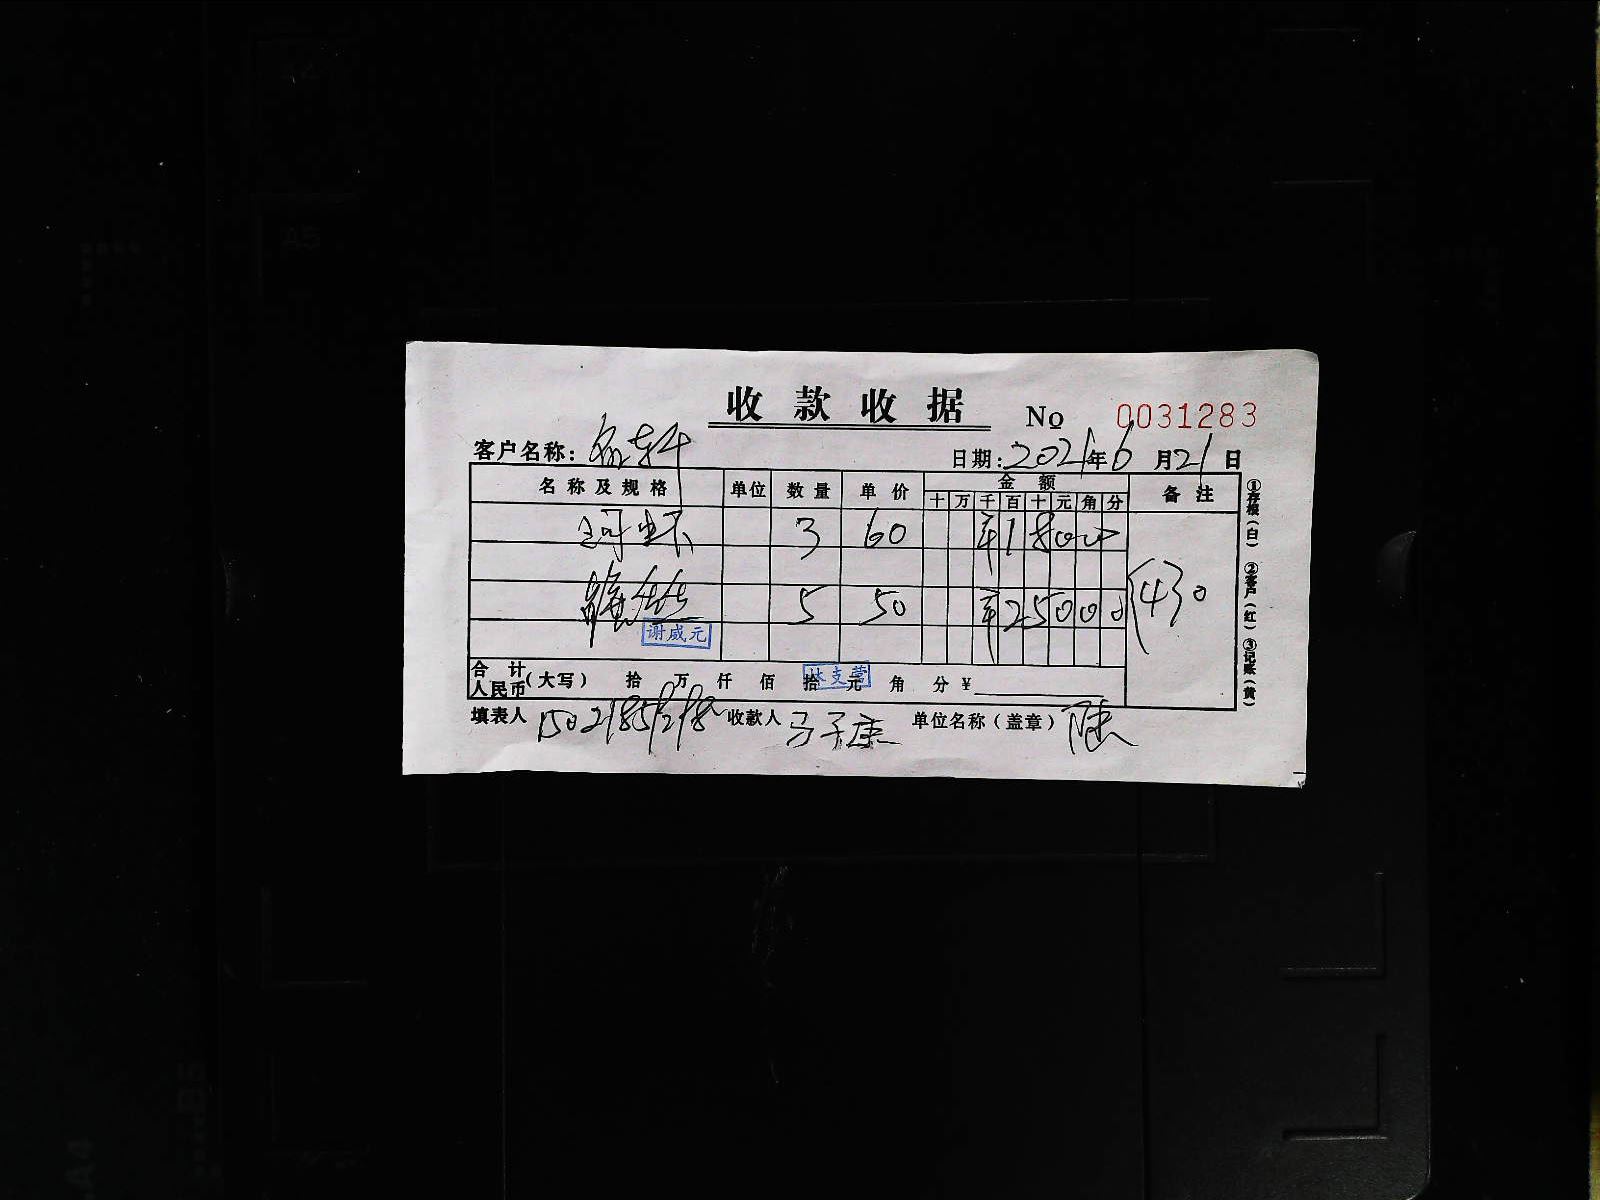 收款收据 No 0031283
客户名称: 日期: 2021年6月21日
名称及规格 单位 数量 单价 金额 备注
十 万 千 百 十 元 角 分
3 60 ¥18000
5 50 ¥25000 430
谢威元
合计人民币(大写) 拾 万 仟 佰 拾 元 角 分 ¥
林支营
填表人 收款人 马子康 单位名称(盖章) 陆
①存根(白) ②客户(红) ③记账(黄)
A5